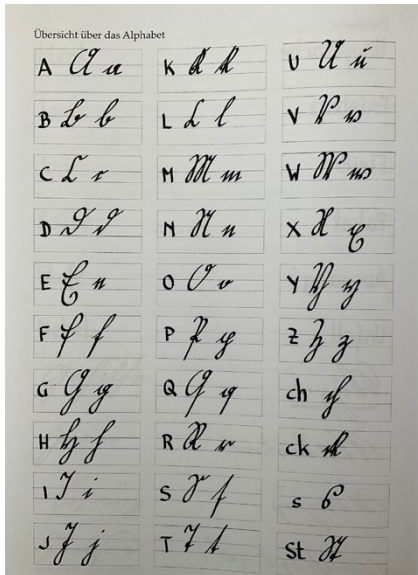 Übersicht über das Alphabet
A A a
B B b
C C c
D D d
E E e
F F f
G G g
H H h
I I i
J J j
K K k
L L l
M M m
N N n
O O o
P P p
Q Q q
R R r
S S s
T T t
U U u
V V v
W W w
X X x
Y Y y
Z Z z
ch ch
ck ck
s s
St St